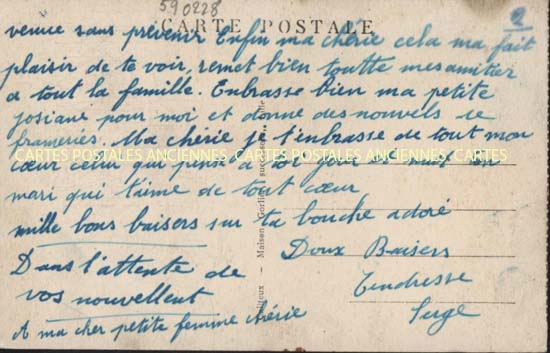 590228
2
CARTE POSTALE
venue sans prévenir Enfin ma chérie cela ma fait
plaisir de te voir, remet bien toutte mes amitier
a tout la famille. Enbrasse bien ma petite
josiane pour moi et donne des nouvels de
frameriés. Ma chérie je t'enbrasse de tout mon
cœur celui qui pense a toi jour et nuit
mari qui t'aime de tout cœur
mille bons baisers sur ta bouche adoré
Doux Baisers
Tendresse
Serge
Dans l'attente de
vos nouvellent
A ma cher petite femme chérie
CARTES POSTALES ANCIENNES CARTES POSTALES ANCIENNES CARTES
Maison